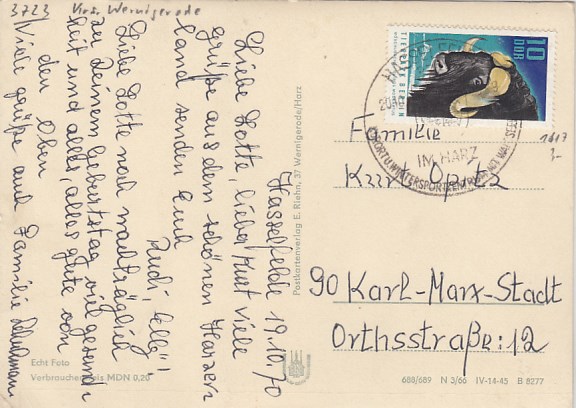 3723 Krs. Wernigerode
Hasselfelde 19.10.70
Liebe Lotte, lieber Kurt viele
grüße aus dem schönen Harzer
land senden Euch
Rudi,
Liebe Lotte noch nachträglich
zu Deinem Geburtstag viel gesund-
heit und alles, alles gute von
den Oben
Viele grüße aus Familie
Echt Foto
Verbraucherpreis MDN 0,20
Postkartenverlag E. Riehn, 37 Wernigerode/Harz
10
DDR
TIERPARK BERLIN
HASSELFELDE
IM HARZ
1617
Familie
Kurt Opitz
90 Karl-Marx-Stadt
Orthsstraße: 12
688/689 N 3/66 IV-14-45 B 8277